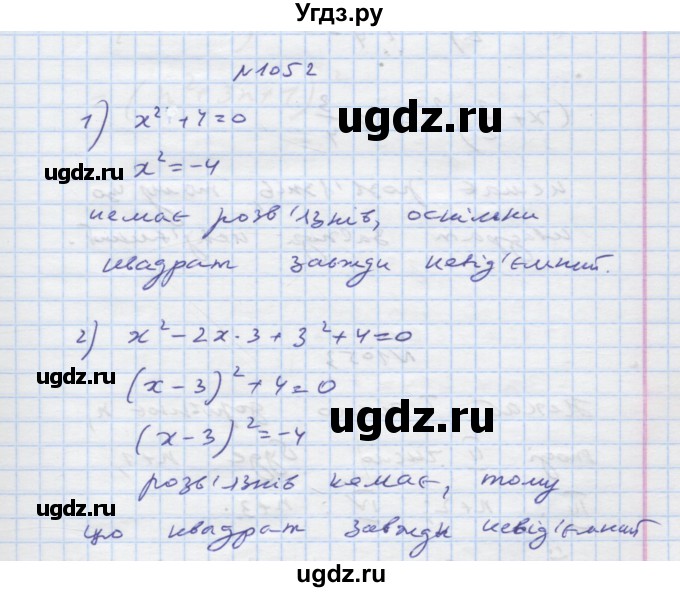 Угдз.ру
№1052
1) x² + 4 = 0
x² = -4
немає розв'язків, оскільки
квадрат завжди невід'ємний.
2) x² - 2x · 3 + 3² + 4 = 0
(x - 3)² + 4 = 0
(x - 3)² = -4
розв'язків немає, тому
що квадрат завжди невід'ємний
ugdz.ru
ugdz.ru
ugdz.ru
ugdz.ru
ugdz.ru
ugdz.ru